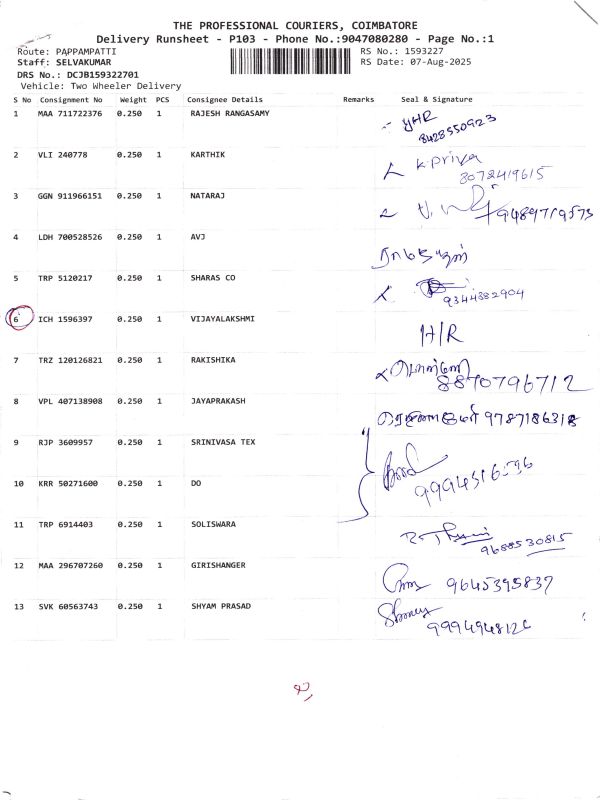 THE PROFESSIONAL COURIERS, COIMBATORE
Delivery Runsheet - P103 - Phone No.:9047080280 - Page No.:1
Route: PAPPAMPATTI RS No.: 1593227
Staff: SELVAKUMAR RS Date: 07-Aug-2025
DRS No.: DCJB159322701
Vehicle: Two Wheeler Delivery
S No Consignment No Weight PCS Consignee Details Remarks Seal & Signature
1 MAA 711722376 0.250 1 RAJESH RANGASAMY
8428550923
2 VLI 240778 0.250 1 KARTHIK K. Priya
8072419615
3 GGN 911966151 0.250 1 NATARAJ 9489719573
4 LDH 700528526 0.250 1 AVJ
5 TRP 5120217 0.250 1 SHARAS CO
9344882904
6 ICH 1596397 0.250 1 VIJAYALAKSHMI H/R
7 TRZ 120126821 0.250 1 RAKISHIKA 8870796712
8 VPL 407138908 0.250 1 JAYAPRAKASH
9 RJP 3609957 0.250 1 SRINIVASA TEX
10 KRR 50271600 0.250 1 DO
11 TRP 6914403 0.250 1 SOLISWARA
9688530815
12 MAA 296707260 0.250 1 GIRISHANGER 9645395837
13 SVK 60563743 0.250 1 SHYAM PRASAD